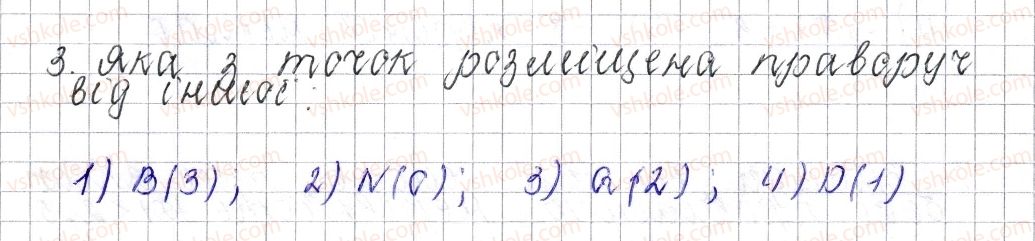 3. Яка з точок розміщена праворуч
від іншої:
1) B(3); 2) N(0); 3) Q(2); 4) D(1)